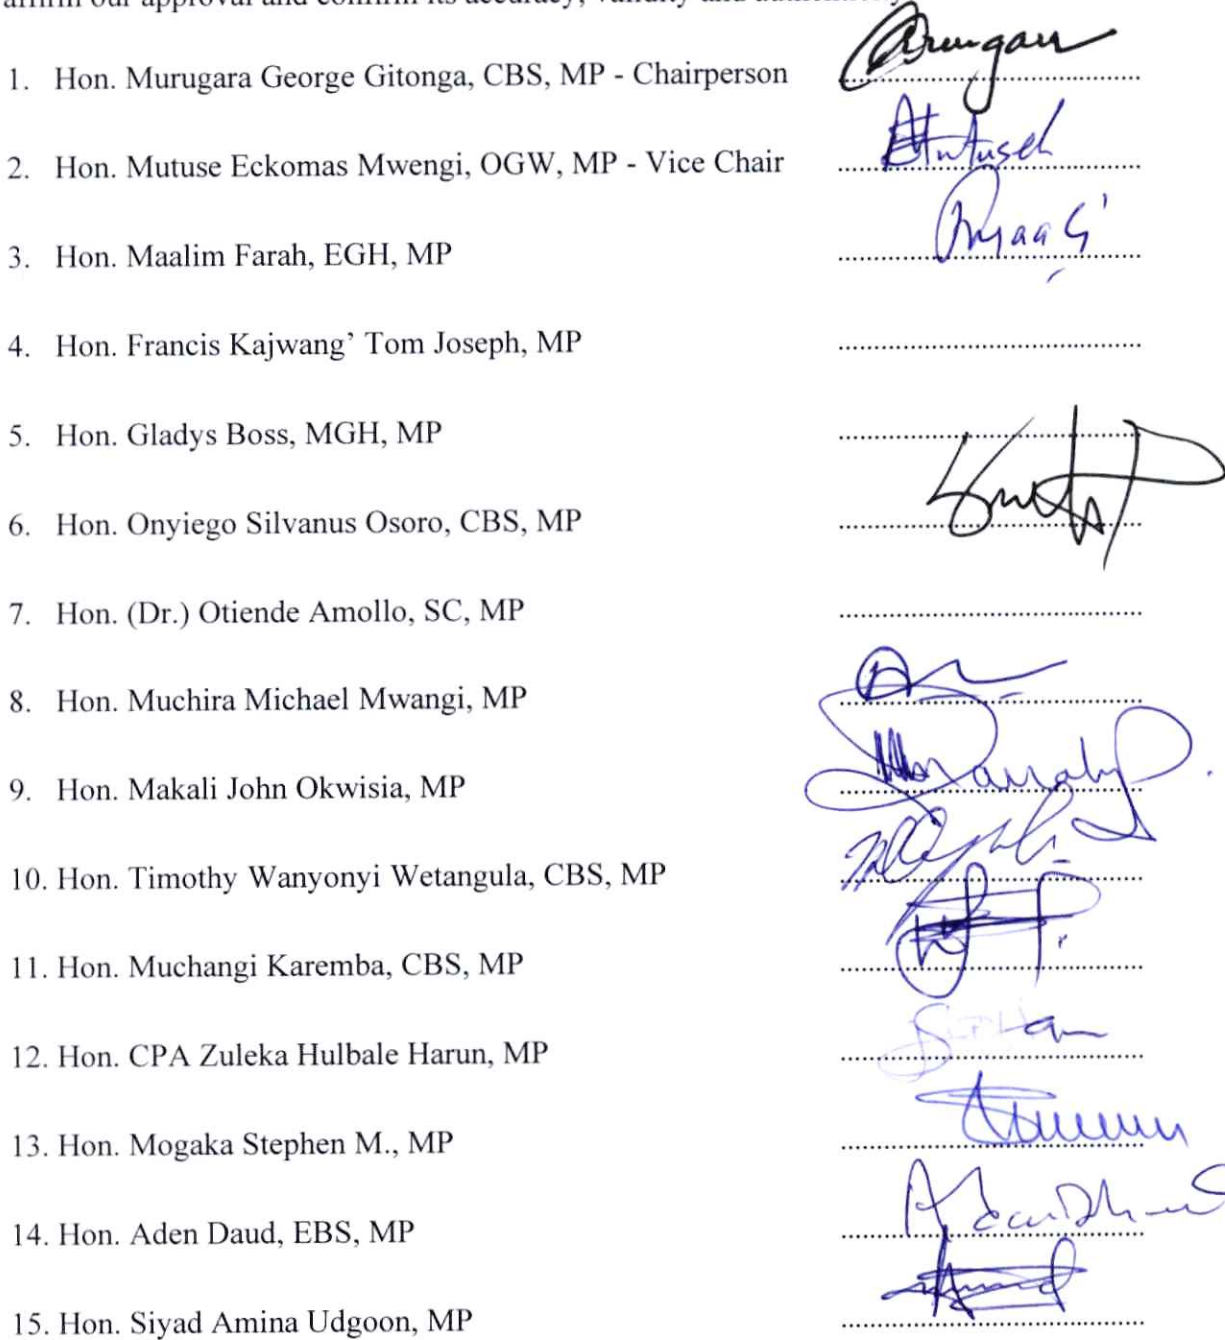 affirm our approval and confirm its accuracy, validity and
1. Hon. Murugara George Gitonga, CBS, MP - Chairperson
2. Hon. Mutuse Eckomas Mwengi, OGW, MP - Vice Chair
3. Hon. Maalim Farah, EGH, MP
4. Hon. Francis Kajwang’ Tom Joseph, MP
5. Hon. Gladys Boss, MGH, MP
6. Hon. Onyiego Silvanus Osoro, CBS, MP
7. Hon. (Dr.) Otiende Amollo, SC, MP
8. Hon. Muchira Michael Mwangi, MP
9. Hon. Makali John Okwisia, MP
10. Hon. Timothy Wanyonyi Wetangula, CBS, MP
11. Hon. Muchangi Karemba, CBS, MP
12. Hon. CPA Zuleka Hulbale Harun, MP
13. Hon. Mogaka Stephen M., MP
14. Hon. Aden Daud, EBS, MP
15. Hon. Siyad Amina Udgoon, MP